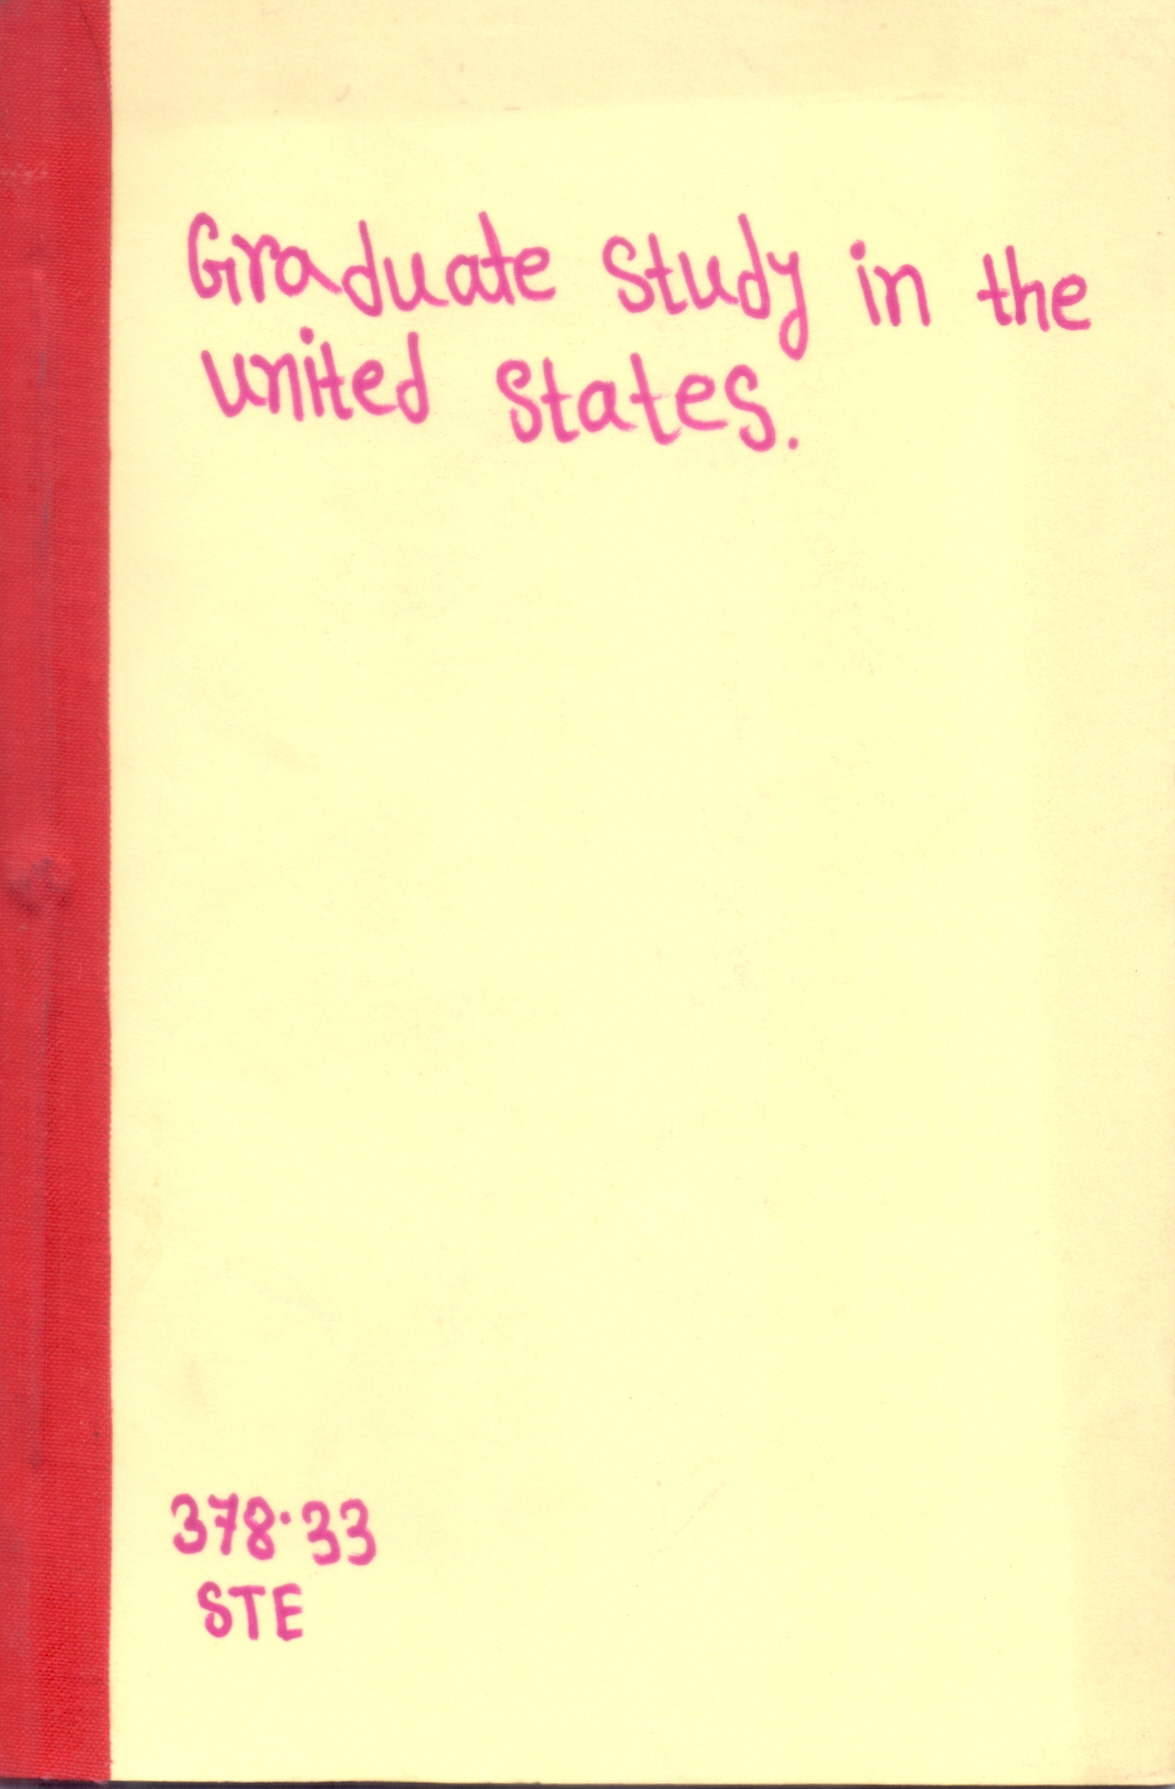 Graduate study in the
united states.
378.33
STE